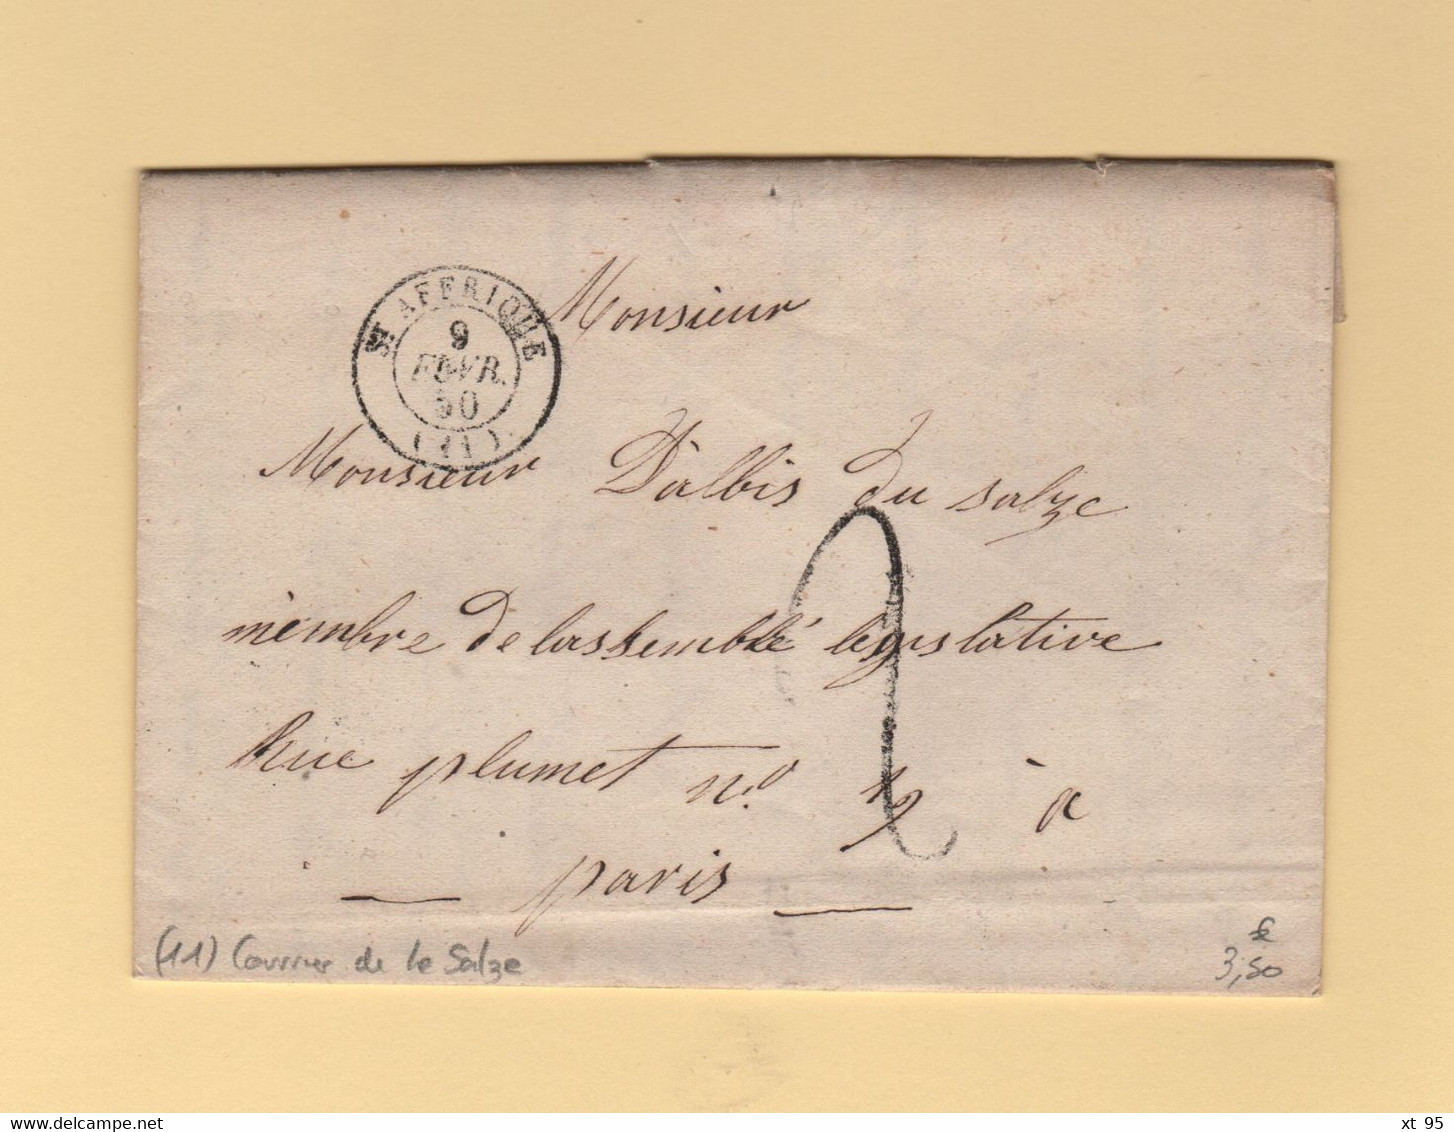 St AFFRIQUE
9
FEVR.
50
(11)
Monsieur
Monsieur D'albis du salze
membre de lassemblé legislative
2
Rue plumet no. 19 à
paris
(11) Courrier de le Salze
3,50
xt 95